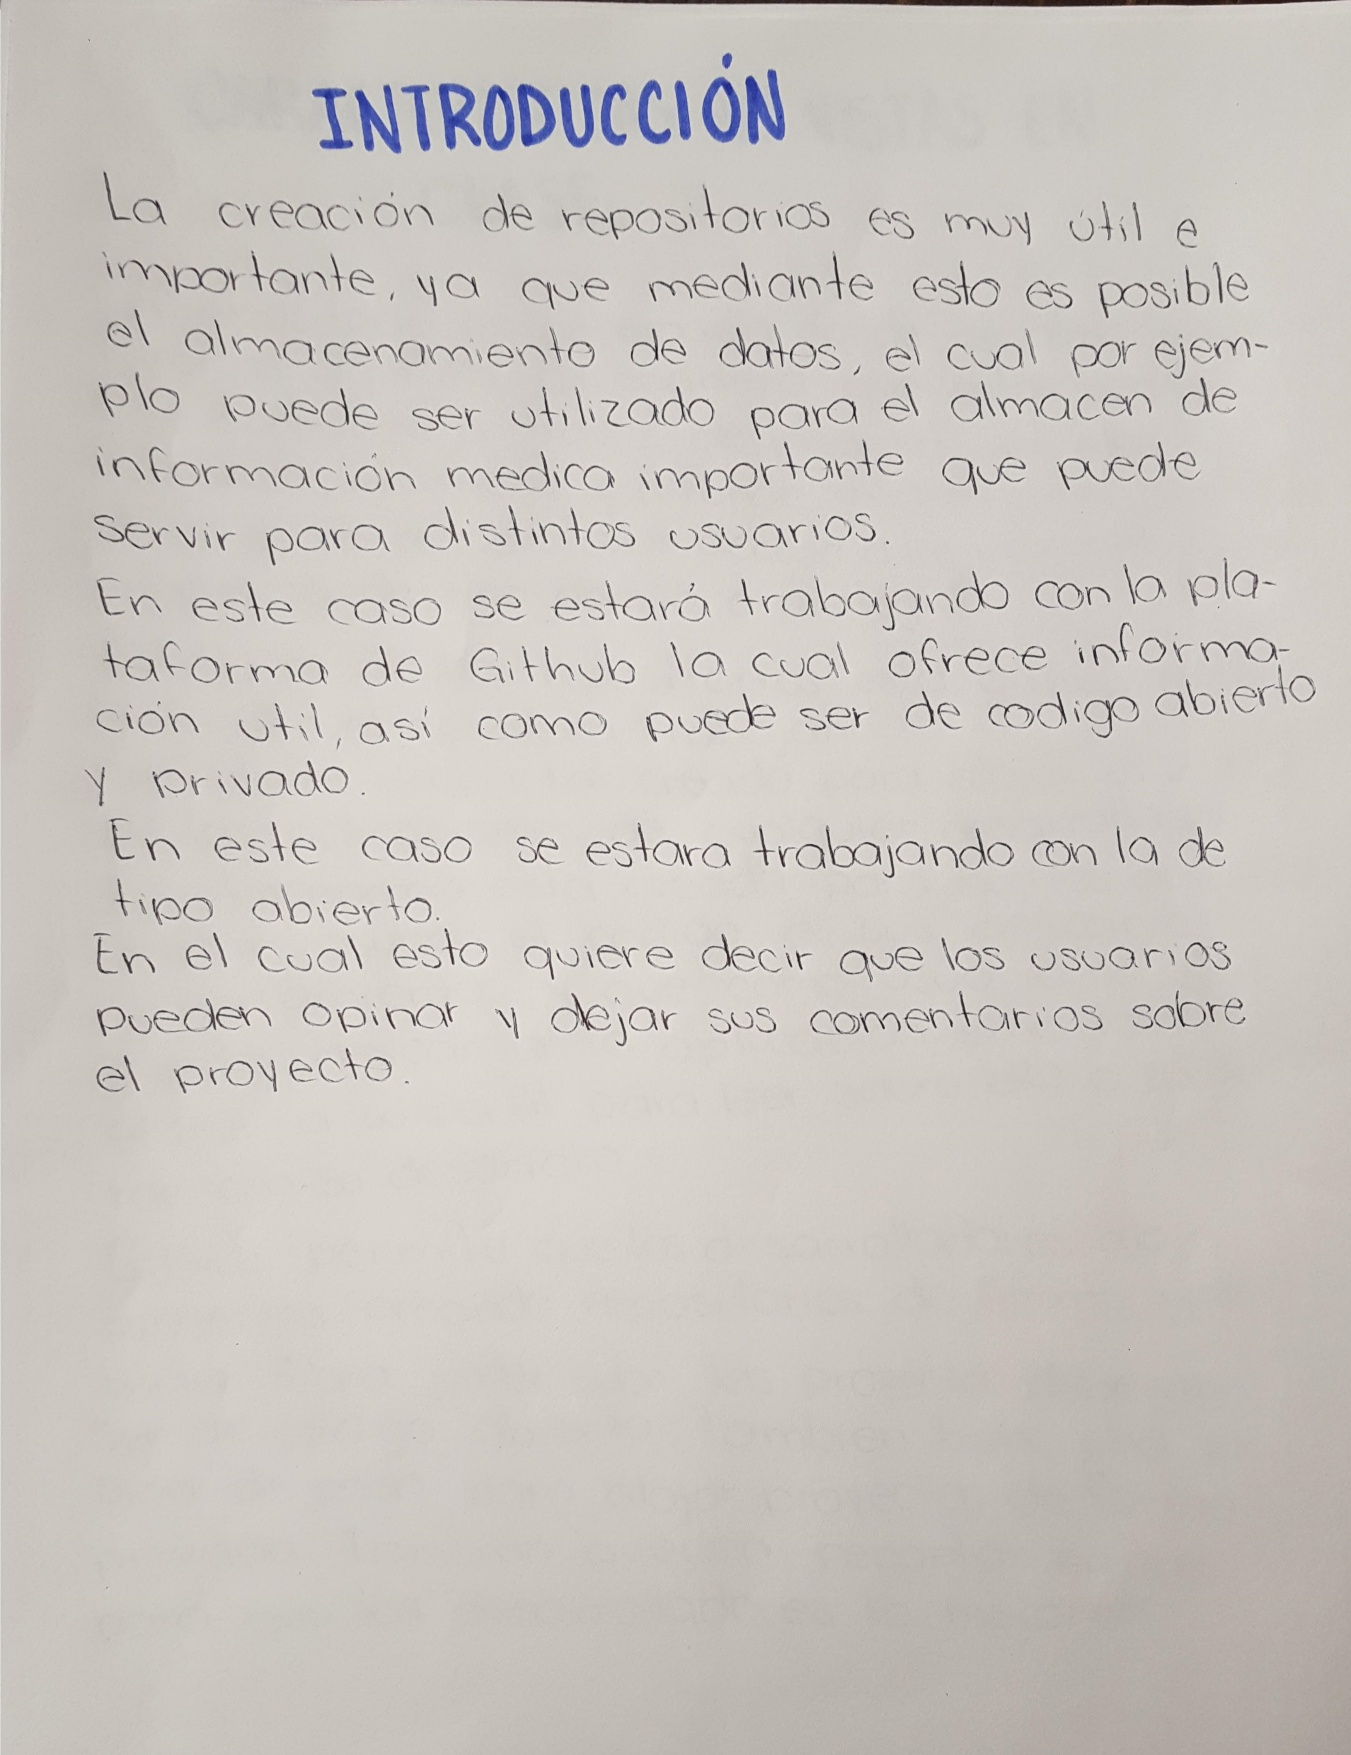 INTRODUCCIÓN
La creación de repositorios es muy útil e
importante, ya que mediante esto es posible
el almacenamiento de datos, el cual por ejem-
plo puede ser utilizado para el almacen de
información medica importante que puede
servir para distintos usuarios.
En este caso se estará trabajando con la pla-
taforma de Github la cual ofrece informa-
ción util, así como puede ser de codigo abierto
y privado.
En este caso se estara trabajando con la de
tipo abierto.
En el cual esto quiere decir que los usuarios
pueden opinar y dejar sus comentarios sobre
el proyecto.